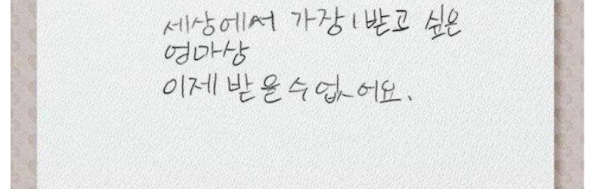 세상에서 가장 받고 싶은
엄마상
이제 받을 수 없어요.